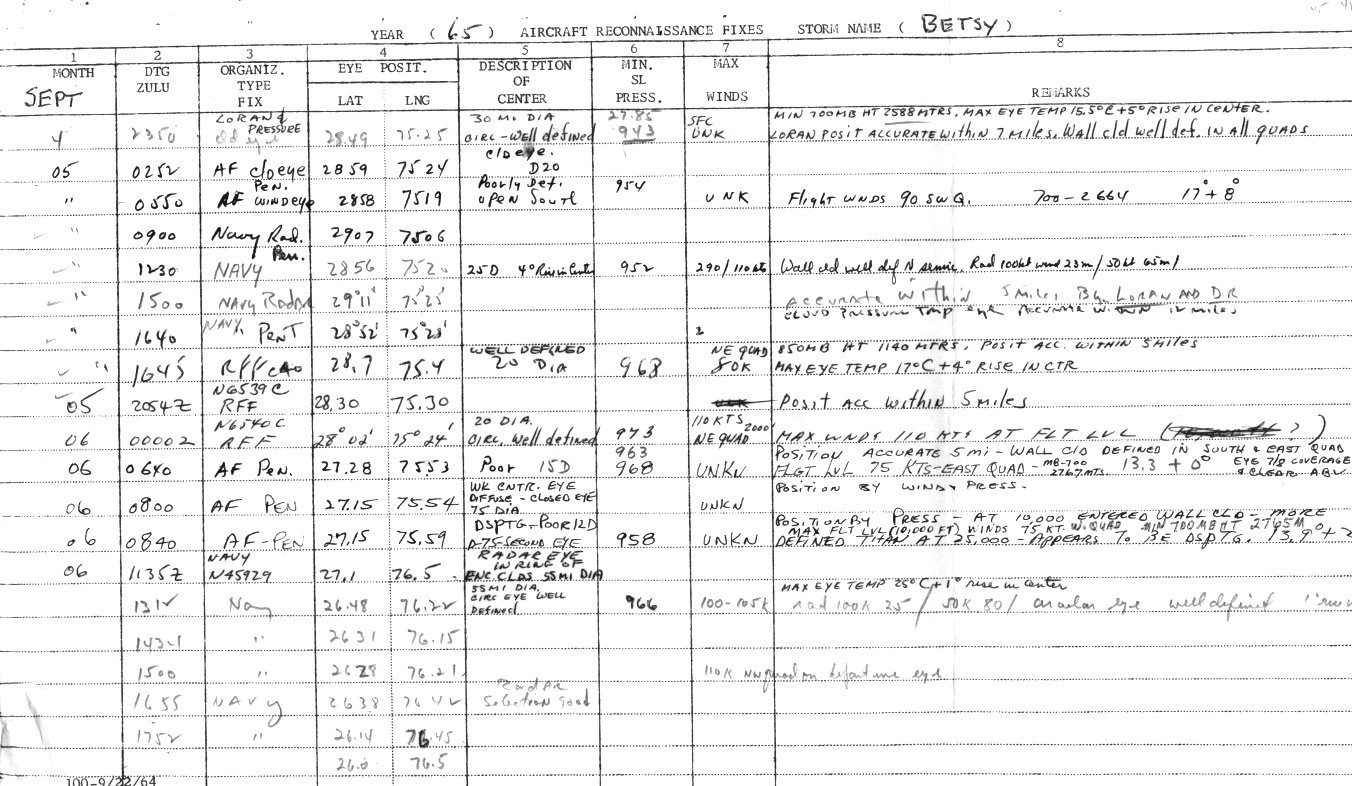 YEAR (65) AIRCRAFT RECONNAISSANCE FIXES STORM NAME (BETSY)
1 2 3 4 5 6 7 8
MONTH DTG ZULU ORGANIZ. TYPE FIX EYE POSIT. LAT LNG DESCRIPTION OF CENTER MIN. SL PRESS. MAX WINDS REMARKS
SEPT
LORAN & PRESSURE 30 MI DIA 27.85 SFC MIN 700MB HT 2588 MTRS, MAX EYE TEMP 15.5°C +5° RISE IN CENTER.
4 2350 28.49 75.25 CIRC-Well defined 943 UNK LORAN POSIT ACCURATE within 7 miles. Wall cld well def. IN all QUADS
Cld eye.
05 0252 AF cld eye 2859 7524 D20
Pen. Poorly Def. 954
" 0550 AF WINDeye 2858 7519 open South UNK Flight WNDS 90 SW Q. 700-2664 17°+8°
" 0900 Navy Rad. 2907 7506
Pen.
" 1230 NAVY 2856 7520 25D 4° Rise in Center 952 290/110kts Wall cld well def N semic. Rad 100kt wind 23m/50kt 65m/
" 1500 NAVY Radar 29°11' 75°25' Accurate within 5 miles By LORAN AND DR
CLOUD PRESSURE Temp eye Accurate within 12 miles
" 1640 NAVY PenT 28°52' 75°28' 2
WELL DEFINED NE QUAD 850MB HT 1140 MTRS, POSIT ACC. WITHIN 5 MILES
" 1645 RFF 28.7 75.4 20 DIA 968 80K MAX EYE TEMP 17°C +4° RISE IN CTR
N6539C
05 2054Z RFF 28.30 75.30 Posit Acc within 5 miles
N6540C 20 DIA. 110 KTS 2000'
06 0000Z RFF 28°02' 75°24' CIRC. Well defined 973 NE QUAD MAX WNDS 110 KTS AT FLT LVL
963 POSITION ACCURATE 5 mi - WALL CLD DEFINED IN SOUTH & EAST QUAD
06 0640 AF Pen. 27.28 7553 Poor 15D 968 UNKN FLGT LVL 75 KTS-EAST QUAD - MB-700 2767 MTS. 13.3 + 0° EYE 7/8 COVERAGE & CLEAR ABV.
WK CNTR. EYE POSITION BY WIND & PRESS.
06 0800 AF PEN 27.15 75.54 DIFFUSE - CLOSED EYE 75 DIA UNKN
DSPTG-POOR 12D POSITION BY PRESS - AT 10,000 ENTERED WALL CLD - MORE
MAX FLT LVL (10,000 FT) WINDS 75 KT. W. QUAD MIN 700 MB HT 2765M
06 0840 AF-PEN 27.15 75.59 D-75-SECOND EYE 958 UNKN DEFINED THAN AT 25,000 - APPEARS TO BE DSPTG. 13.9°+2
NAVY RADAR EYE IN RING OF
06 1135Z N45929 27.1 76.5 ENC. CLDS 55 MI DIA
55 MI DIA. MAX EYE TEMP 25°C +1° rise in center
1312 Navy 26.48 76.22 CIRC EYE WELL DEFINED 966 100-105K rad 100K 25/50K 80/ circular eye well defined
1434 " 2631 76.15
1500 " 2628 76.21 110K NW quad on eye
1655 NAVY 2638 7642 Good
1752 " 26.14 76.45
26.0 76.5
100-9/22/64